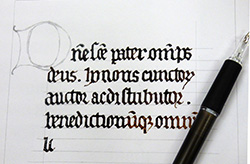 Dn̄e sc̄e pater om̄ps
deus. honorū cunctoꝝ
auctor ac distributor.
benedictionūq omniū
li